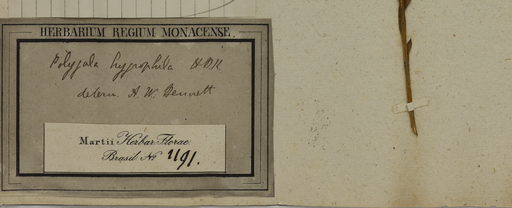 HERBARIUM REGIUM MONACENSE.
Polygala hygrophila HBK
determ. A. W. Bennett
Martii Herbar. Florae
Brasil. No 1191.